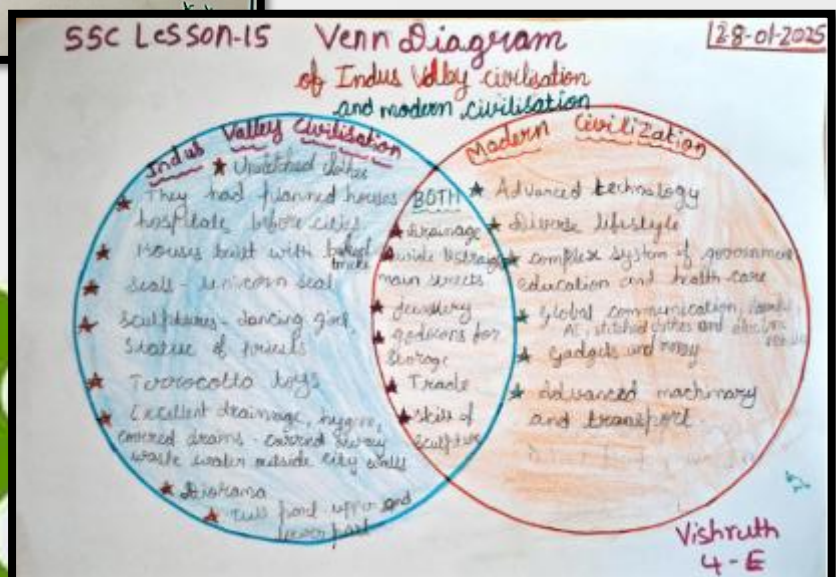 SSC LeSSon-15 Venn Diagram
28-01-2025
of Indus Valley civilisation
and modern civilisation
Indus Valley Civilisation
★ Unstitched clothes
★ They had planned houses
hospitals before cities
★ Houses built with baked
bricks
★ Seals - unicorn seal
★ Sculptures - dancing girl,
Statue of priests
★ Terrocotta toys
★ Excellent drainage, hygine,
covered drains - carried away
waste water outside city walls
★ Diorama
★ two part upper and
lower part
BOTH
★ drainage
★ wide & straight
main streets
★ jewellery
★ godowns for
storage
★ Trade
★ skill of
sculpture
Modern Civilization
★ Advanced technology
★ Diverse lifestyle
★ complex system of government
education and health care
★ Global communication,
AI, stitched clothes and electric
★ Gadgets and
★ Advanced machinary
and transport.
Vishruth
4-E